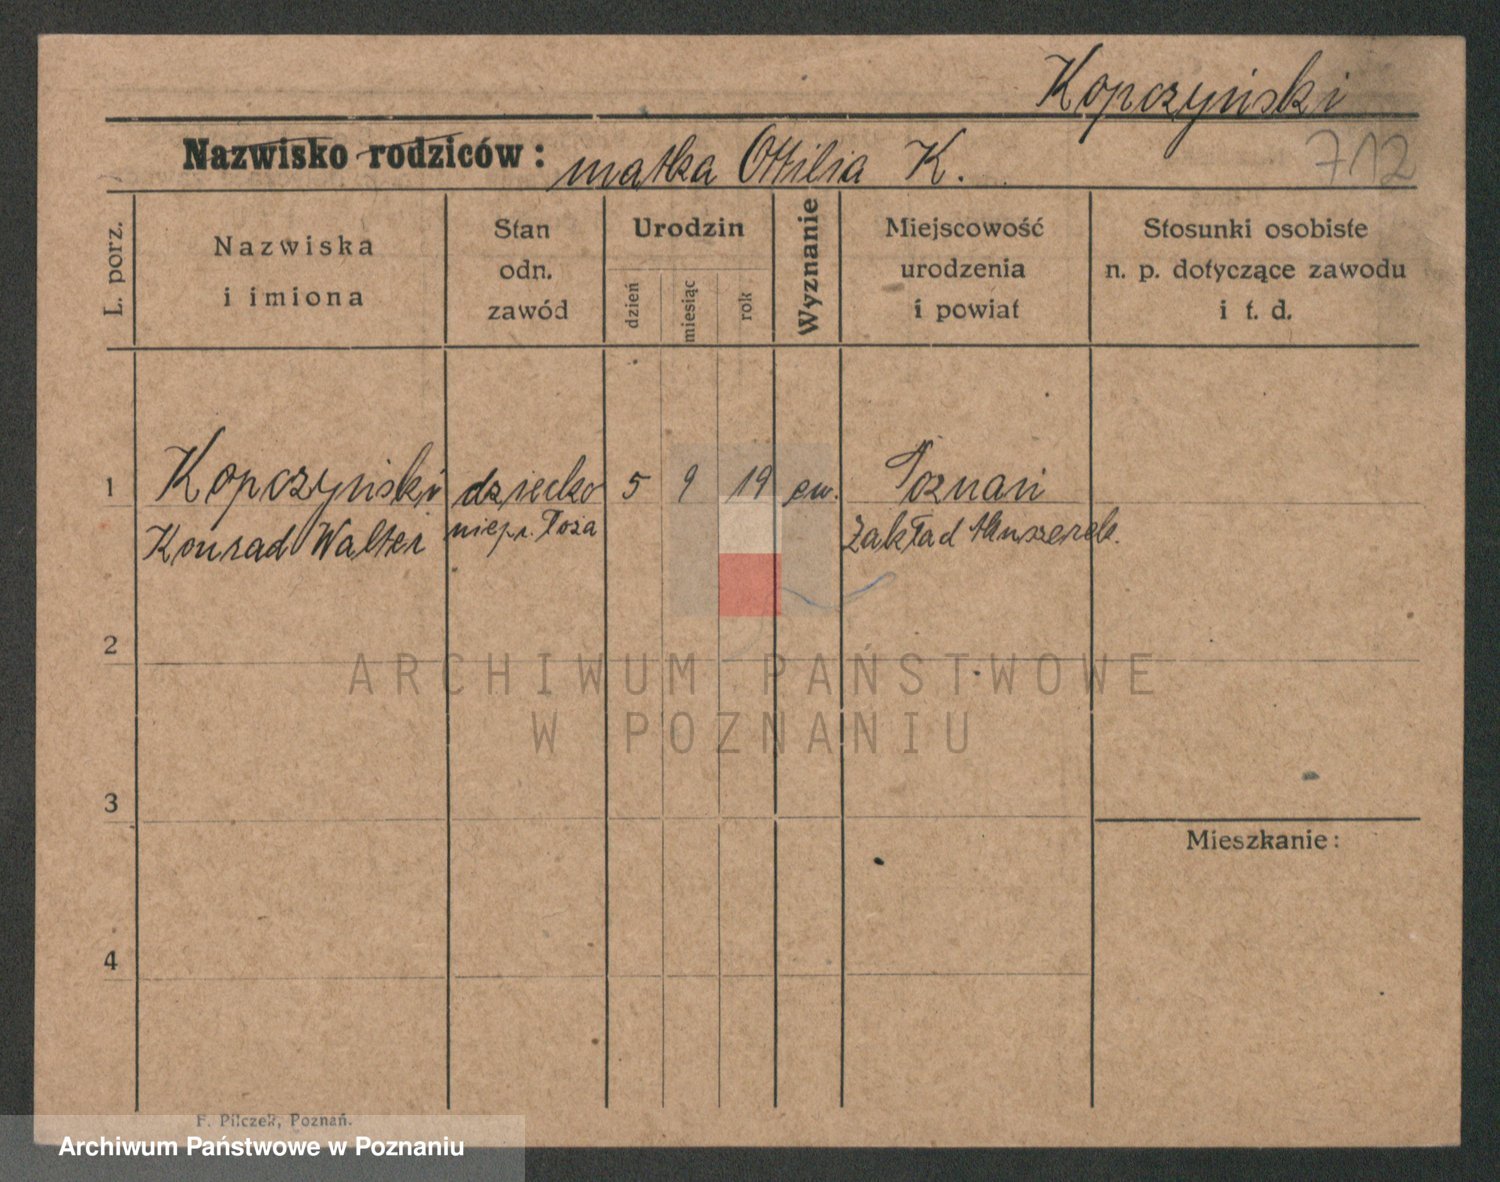 Kopczyński
Nazwisko rodziców: matka Ottilia K.
712
L. porz.
Nazwiska
i imiona
Stan
odn.
zawód
Urodzin
dzień
miesiąc
rok
Wyznanie
Miejscowość
urodzenia
i powiat
Stosunki osobiste
n. p. dotyczące zawodu
i t. d.
1 Kopczyński dziecko 5 9 19 ew. Poznań
Konrad Walter niepr. łoża Zakład
2
ARCHIWUM PAŃSTWOWE
W POZNANIU
3
Mieszkanie:
4
F. Pilczek, Poznań.
Archiwum Państwowe w Poznaniu